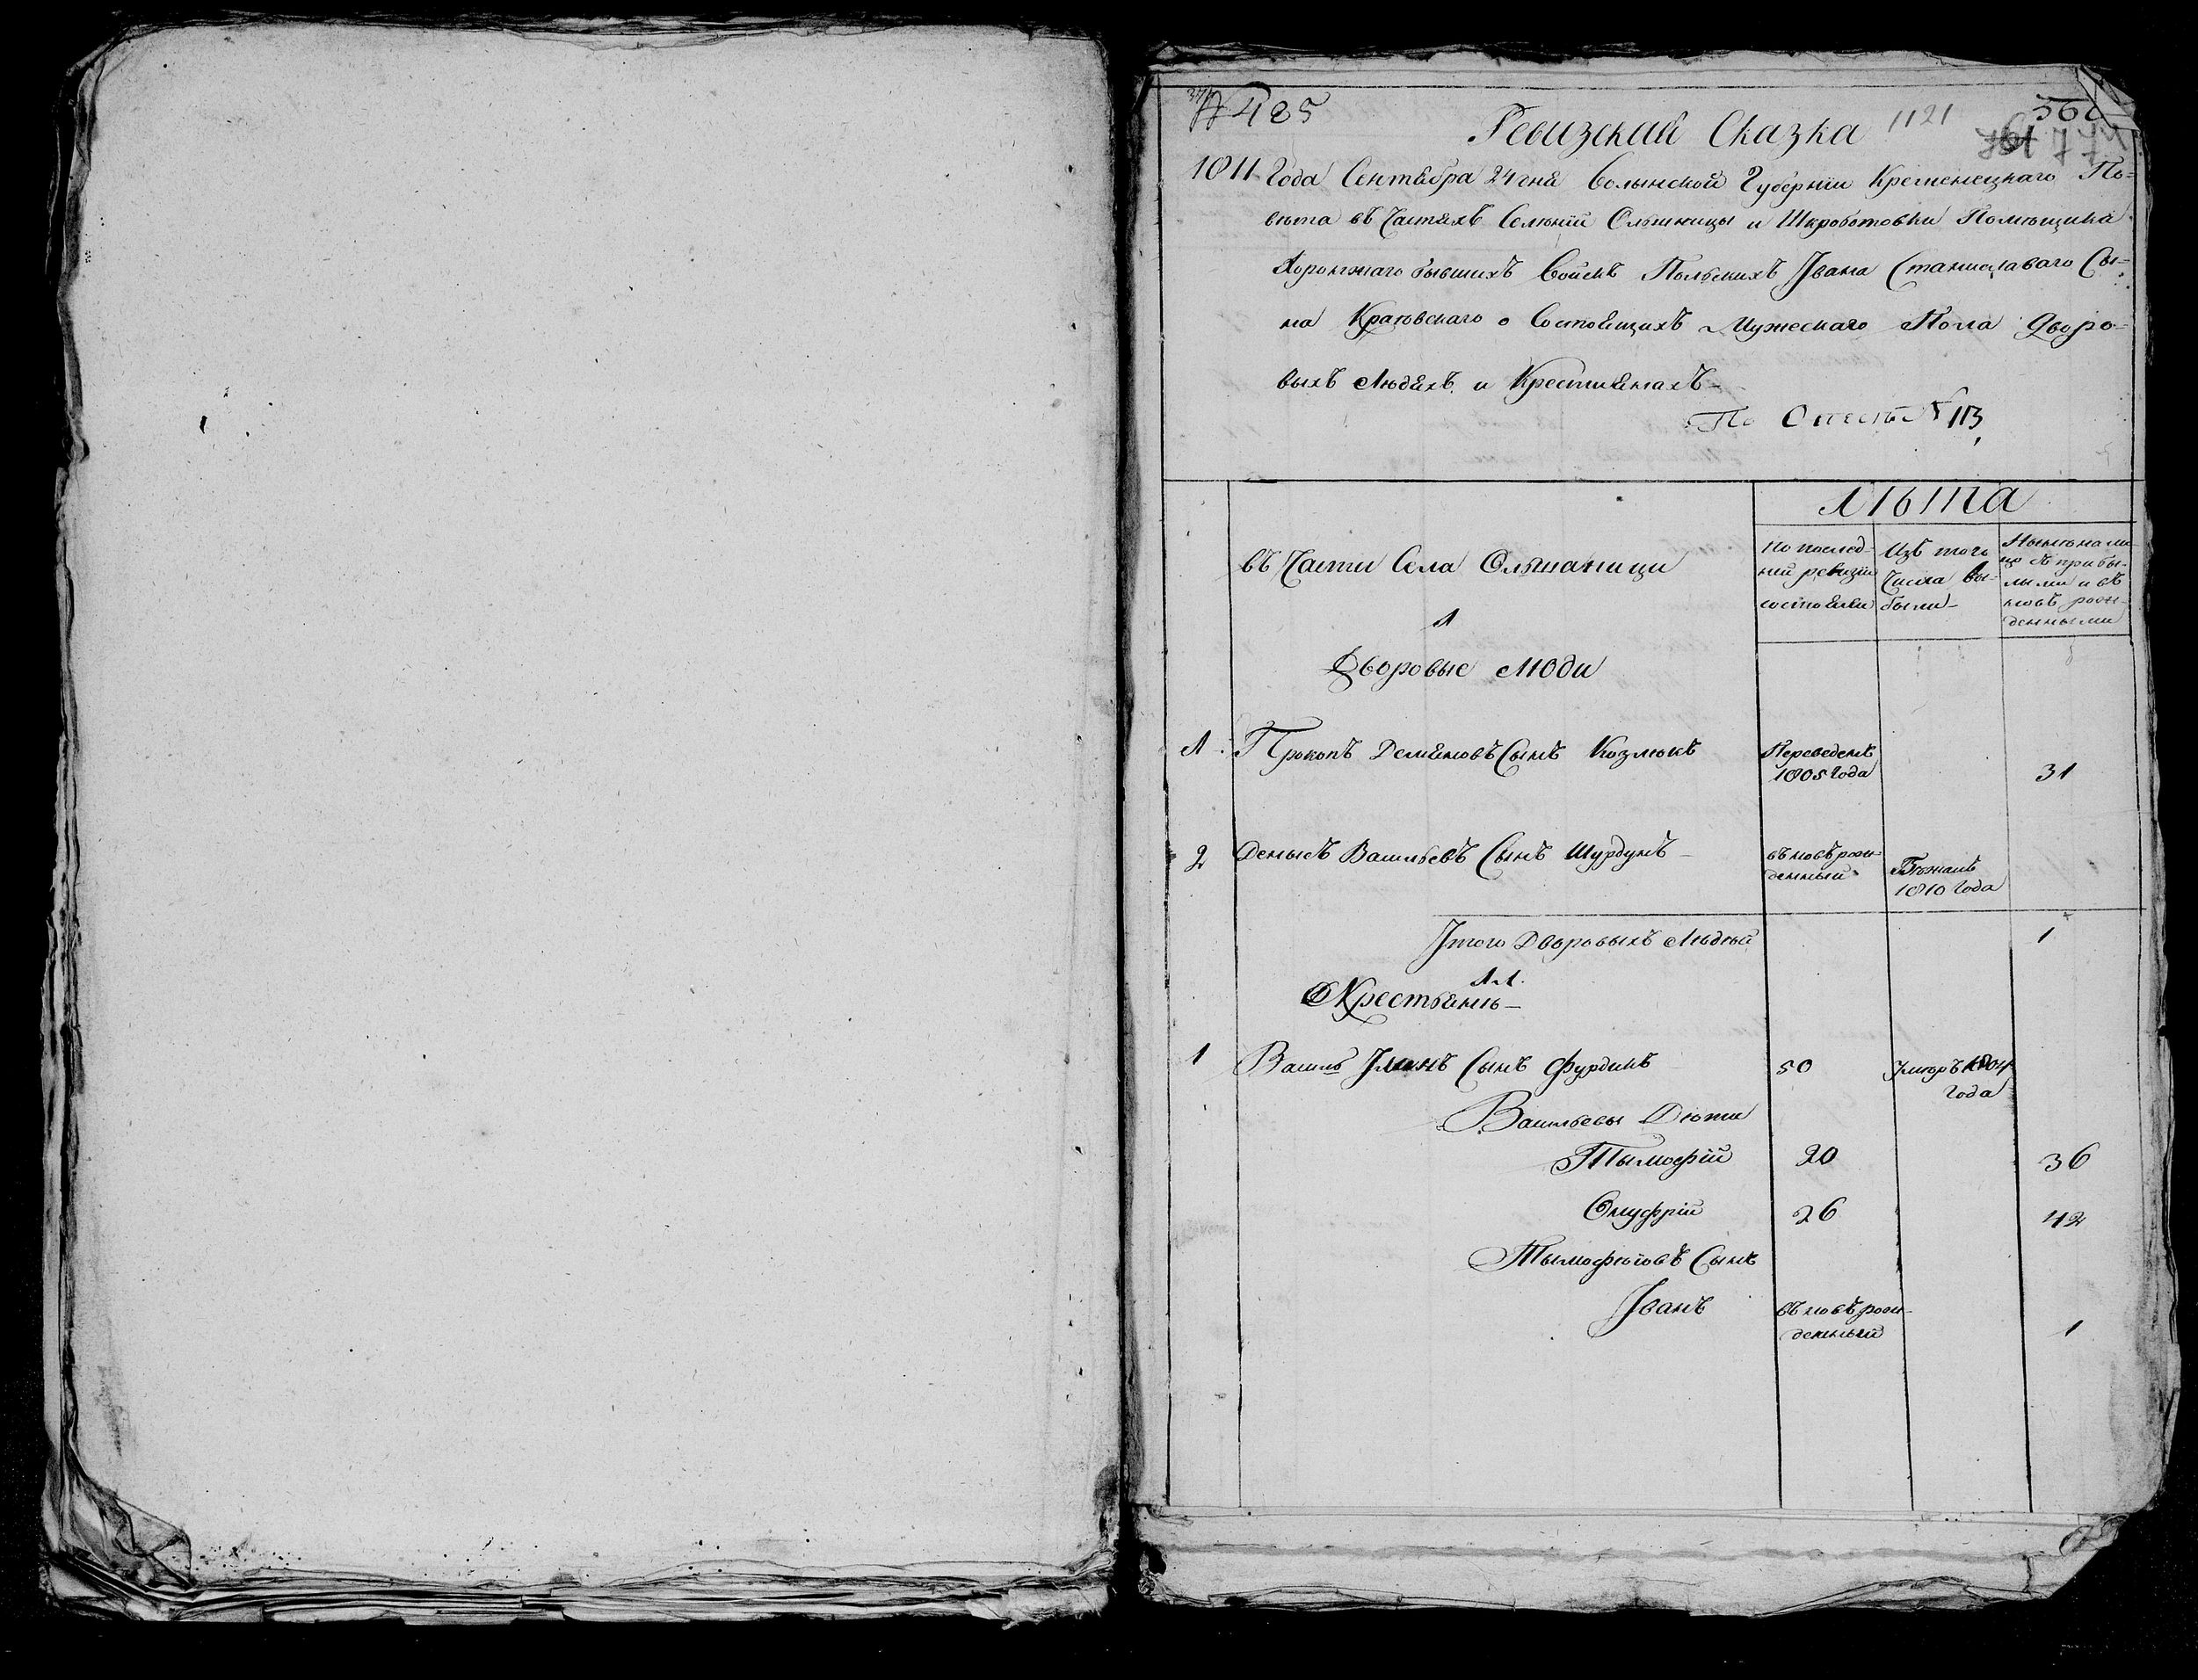 № 485
Ревизская Сказка 1121
1811 Года Сентября 24 дня Волынской Губернии Кременецкаго По=
вѣта въ Частяхъ Селеній Ольшаницы и Шкроботовки Помѣщика
Хоронжаго бывшихъ Войскъ Польскихъ Івана Станиславаго Сы=
на Краковскаго о Состоящихъ Мужескаго Пола Дворо=
выхъ Людяхъ и Крестиянахъ
По Описи № 113
Лѣта
въ Части Села Ольшаници
По послед-
ней ревизіи
состояли
Изъ того
Числа вы-
были
Нынѣ на ли
цо съ прибы-
лыми и въ
новъ рож-
денными
1
Дворовые Люди
1 Прокопъ Демяновъ Сынъ Козлюкъ Переведенъ
1805 Года 31
2 Денысъ Васильевъ Сынъ Шурдукъ въ новъ рож-
денный Бѣжалъ
1810 Года
Ітого Дворовыхъ Людѣй 1
11.
Крестьянѣ
1 Василь Сынъ Фурдикъ 50 Умеръ 1804
Года
Васильевы Дѣти
Тымофій 20 36
Онуфрій 26 42
Тымофѣювъ Сынъ
Іванъ въ новъ рож-
денный 1